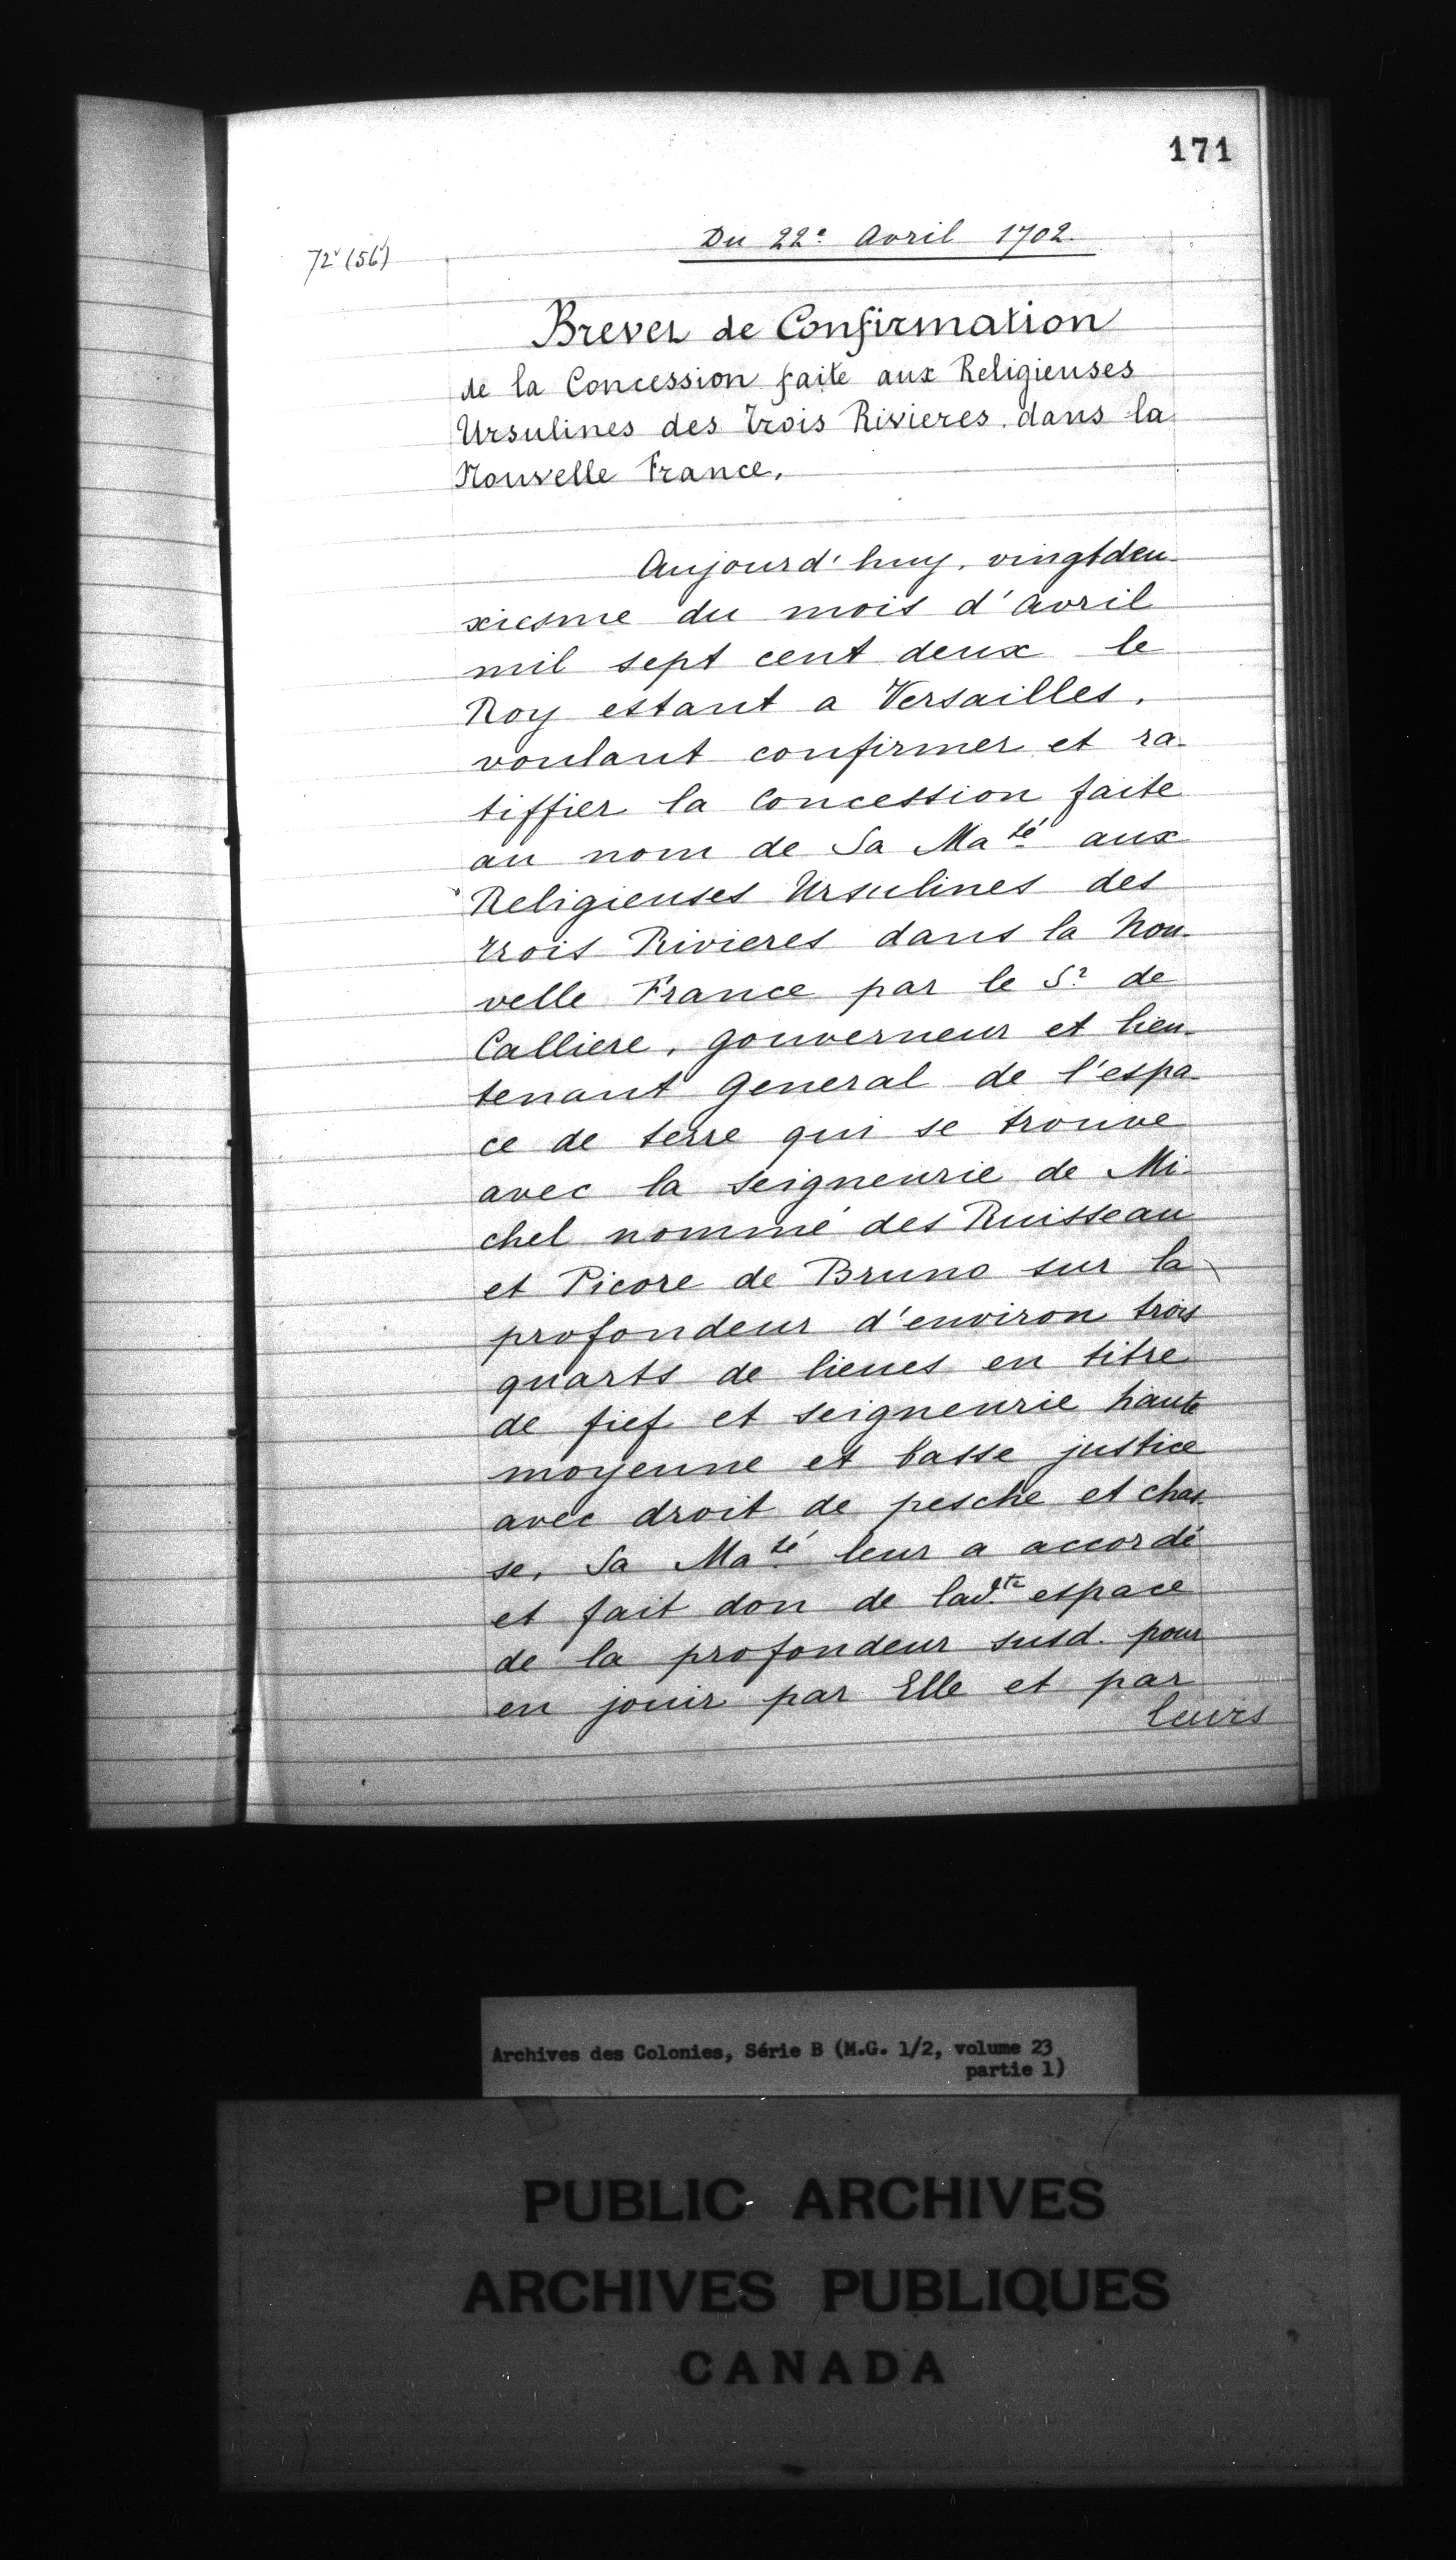 171
Du 22e Avril 1702.
72v (56)
Brevet de Confirmation
de la Concession faite aux Religieuses
Ursulines des Trois Rivieres. dans la
Nouvelle France.
Aujourd'huy, vingtdeu-
xiesme du mois d'Avril
mil sept cent deux le
Roy estant a Versailles,
voulant confirmer et ra-
tiffier la Concession faite
au nom de Sa Maté aux
Religieuses Ursulines des
trois Rivieres dans la Nou-
velle France par le Sr de
Calliere, gouverneur et lieu-
tenant General de l'espa-
ce de terre qui se trouve
avec la seigneurie de Mi-
chel nommé des Ruisseau
et Picore de Bruno sur la
profondeur d'environ trois
quarts de lieues en titre
de fief et seigneurie haute
moyenne et basse justice
avec droit de pesche et chas-
se, Sa Maté leur a accordé
et fait don de ladte espace
de la profondeur susd. pour
en jouir par Elle et par
leurs
Archives des Colonies, Série B (M.G. 1/2, volume 23
partie 1)
PUBLIC ARCHIVES
ARCHIVES PUBLIQUES
CANADA